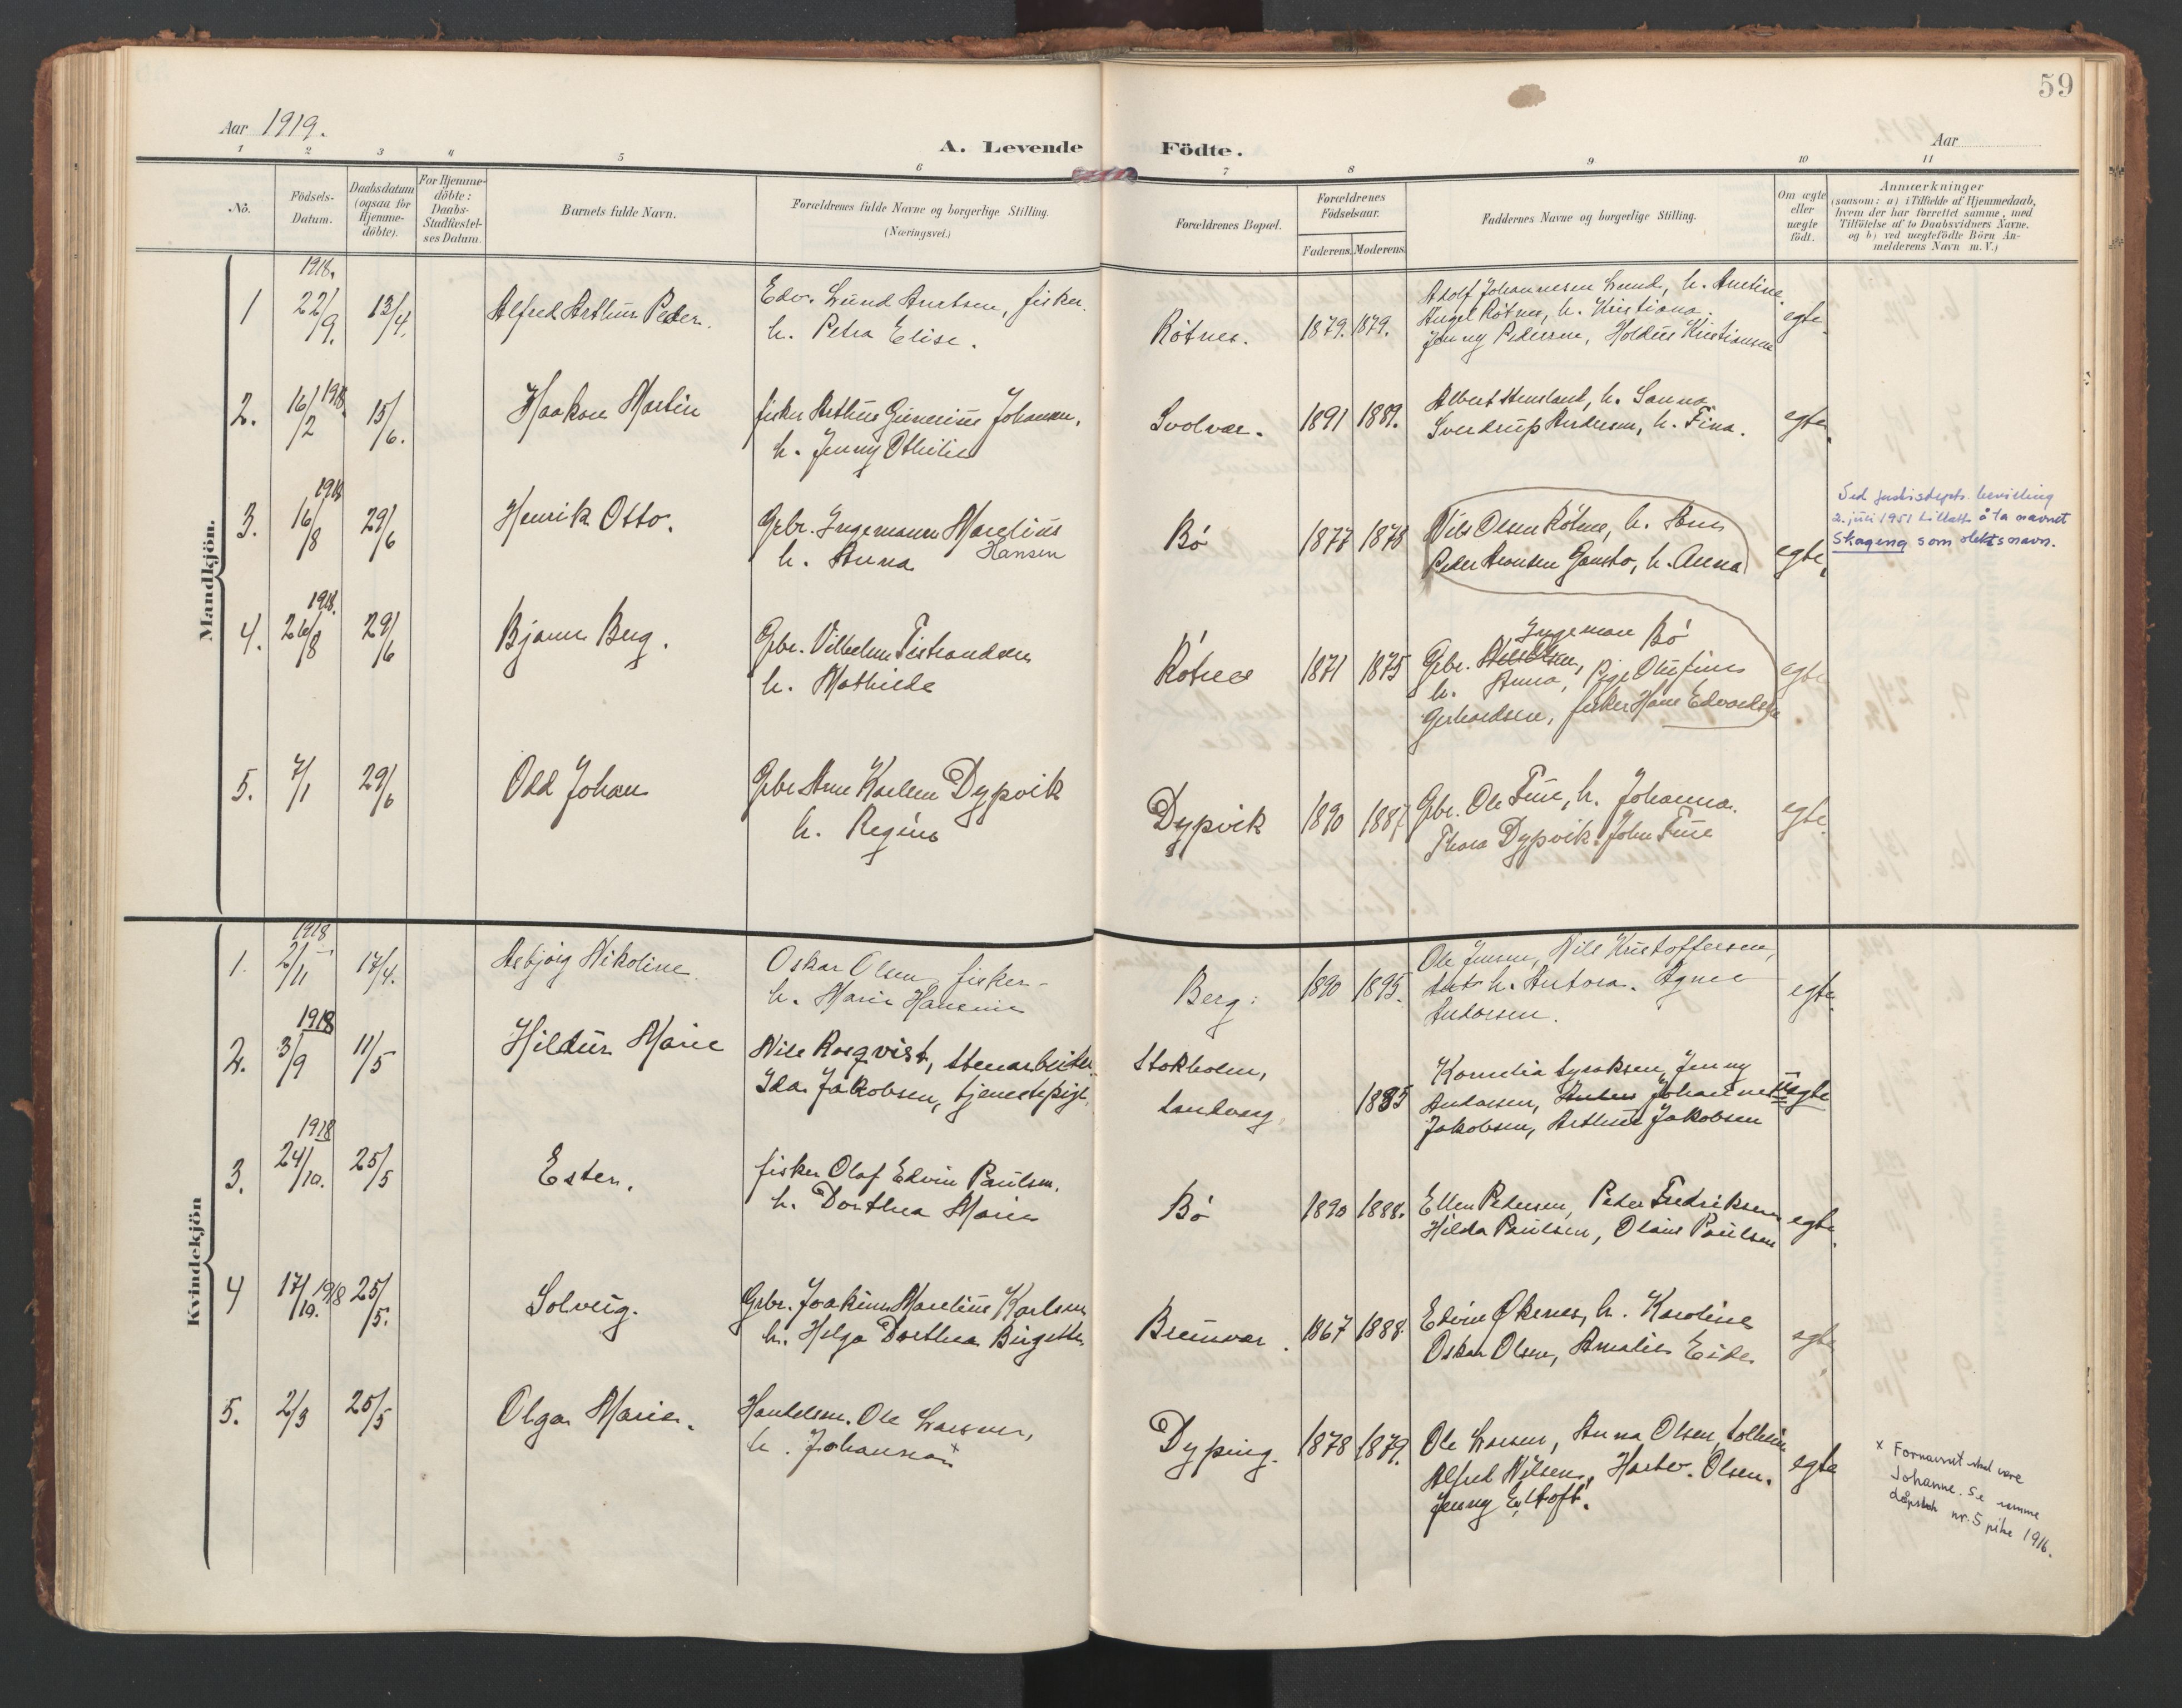 59
Aar 1919.
Aar
A. Levende Födte.
1 2 3 4 5 6 7 8 9 10 11
No.
Födsels-Datum.
Daabsdatum (ogsaa for Hjemme-döbte).
For Hjemme-döbte: Daabs-Stadfæstel-ses Datum.
Barnets fulde Navn.
Forældrenes fulde Navne og borgerlige Stilling.
(Næringsvei.)
Forældrenes Bopæl.
Forældrenes Födselsaar.
Faderens. Moderens.
Faddernes Navne og borgerlige Stilling.
Om ægte eller uægte födt.
Anmærkninger
(saasom: a) i Tilfælde af Hjemmedaab,
hvem der har forrettet samme, med
Tilföielse af to Daabsvidners Navne.
og b) ved uægtefödte Börn An-
melderens Navn m. V.)
Mandkjön.
1 1918. 22/9. 13/4. Alfred Arthur Peder. Edv. Lund Arntsen, fisker. Rötnes. 1879. 1879. Adolf Johannesen Lund, h. Antine. egte.
h. Petra Elise. Angel Rötnes, h. Kristiana.
Jenny Pedersen, Kristiansen
2. 16/2 1918. 15/6. Haakon Martin fisker Arthur Johansen, Svolvær. 1891 1889. Albert h. Sanna egte.
h. Jenny Othilie Sverdrup Andersen, h. Fina.
3. 1918 16/8 29/6 Henrik Otto. Gbr. Ingemann Marelius Bö 1877 1878 Nils Olsen Rötnes, h. egte,
h. Anna Hansen Peder Arontsen h. Anna
Ved justisdepts. bevilling
2. juli 1951 tillatt å ta navnet
Skageng som slektsnavn.
4. 1918. 26/8 29/6 Bjarne Berg. Gbr. Vilhelm Tistrandsen Rötnes 1871 1875 Ingeman Bö egte
h. Mathilde Gbr. Nils Olsen, h. Anna, Pige Olufine
Gerhardsen, fisker Hans Edvardsen
5. 7/1 29/6 Odd Johan Gbr Arne Karlsen Dypvik Dypvik 1890 1887 Gbr. Ole Fure, h. Johanna. egte.
h. Regine Thora Dypvik John Fure
Kvindekjön
1. 1918 2/11 17/4. Asbjörg Nikoline Oskar Olsen fisker- Berg. 1890 1895. Ole Jensen, Nils Kristoffersen, egte.
h. Marie Hansine h. Antora. Agnes
Andersen.
2. 1918 3/9 11/5 Hildur Marie Nils Rosqvist, stenarbeider. Stokholm, Kornelia Jenny
Ida Jakobsen, tjenestepige. Sandvær, 1885 Andersen, Johannes uegte
Jakobsen, Arthur Jakobsen
3. 1918 24/10. 25/5 Ester. fisker Olaf Edvin Paulsen. Bö 1890 1888. Ellen Pedersen, Peder Fredriksen egte.
h. Dorthea Marie Hilda Paulsen, Olaus Paulsen
4 17/10. 1918 25/5. Solveig. Gbr. Joakim Marelius Karlsen Breivær. 1867 1888. Edvin Økenes, h. Karoline egte
h. Helga Dorthea Birgitte Oskar Olsen, Amalie Eide
5. 2/3 25/5 Olga Marie. Handelsm. Ole Larsen, Dyping. 1878 1879. Ole Larsen, Anna Olsen, egte
h. Johanna x Alfred Nilsen, Hartv. Olsen.
Jenny Eltoft.
x Fornavnet skal være
Johanne. Se samme
dåpsbok nr. 5 pike 1916.